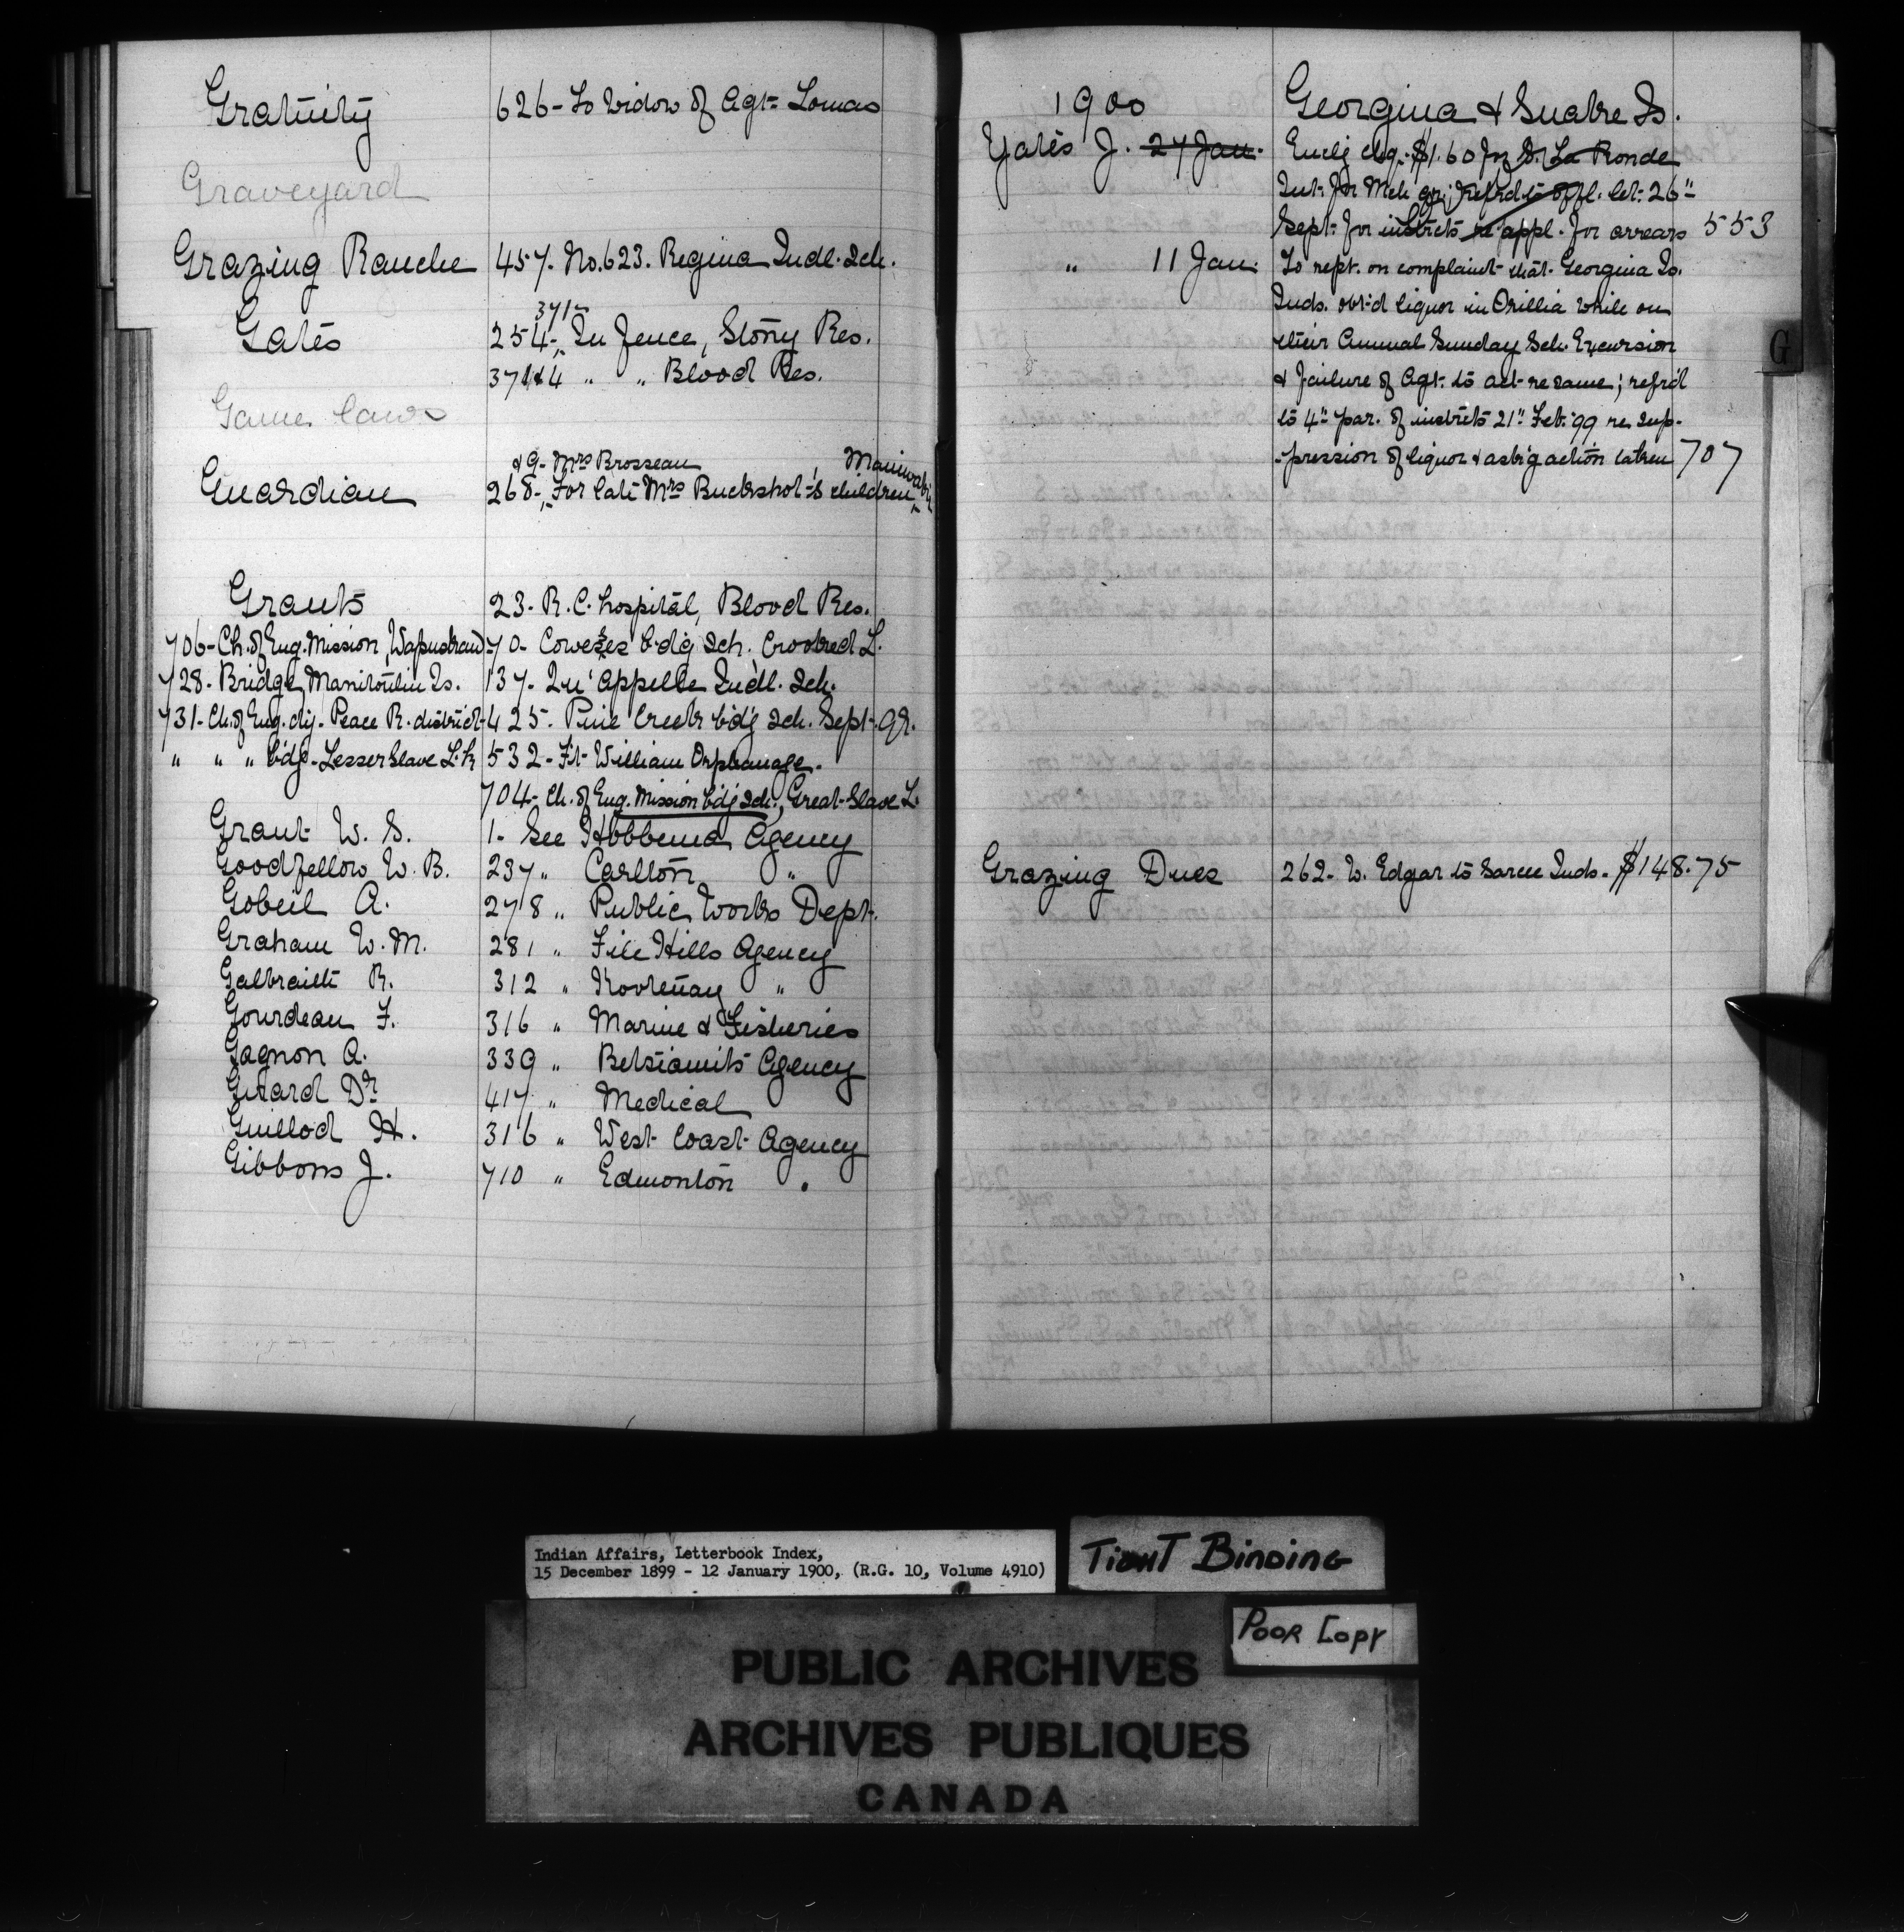 Gratuity 626 - To Widow of Agt. Lomas
Graveyard
Grazing Ranche 457. No. 623. Regina Indl. Sch.
371-
Gates 254-, In Fence, Stony Res.
374 " " Blood Res.
Game laws
& 9- Mrs Brosseau Maniwaki
Guardian 268-, For late Mrs Buckshot's children
Grants 23- R.C. hospital, Blood Res.
706- Ch. of Eng. Mission, 70- Cowesses bdg Sch. Crooked L.
728- Bridge, Manitoulin Is. 137- Qu'Appelle Indl. Sch.
731- Ch. of Eng. Peace R. district- 425- Pine Creek bdg Sch. Sept. qr.
" " " bdg- Lesser Slave L. 532- Ft. William Orphanage.
704- Ch. of Eng. Mission bdg Sch., Great Slave L.
Grant W. S. 1- See Hobbema Agency
Goodfellow W. B. 237 " Carlton "
Gobeil A. 278 " Public Works Dept.
Graham W. M. 281 " File Hills Agency
Galbraith R. 312 " Kootenay "
Gourdeau F. 316 " Marine & Fisheries
Gagnon A. 339 " Betsiamits Agency
Girard Dr 417 " Medical
Guillod H. 316 " West Coast Agency
Gibbons J. 710 " Edmonton "
1900 Georgina & Snake Is.
Yates J. 27 Jan. Enclg chq. $1.60 for S. La Ronde
Int. for Mch qr; refrd to offl. let. 26"
Sept. for instrcts re appl. for arrears 553
" 11 Jan. To rept. on complaint that Georgina Is.
Inds. obt'd liquor in Orillia while on
their Annual Sunday Sch. Excursion
& failure of Agt. to act re same; refrd
to 4" par. of instrcts 21" Feb. '99 re sup-
-pression of liquor & ask'g action taken 707
Grazing Dues 262- W. Edgar to Sarcee Inds. $148.75
G
Indian Affairs, Letterbook Index,
15 December 1899 - 12 January 1900, (R.G. 10, Volume 4910)
TIGHT BINDING
POOR COPY
PUBLIC ARCHIVES
ARCHIVES PUBLIQUES
CANADA